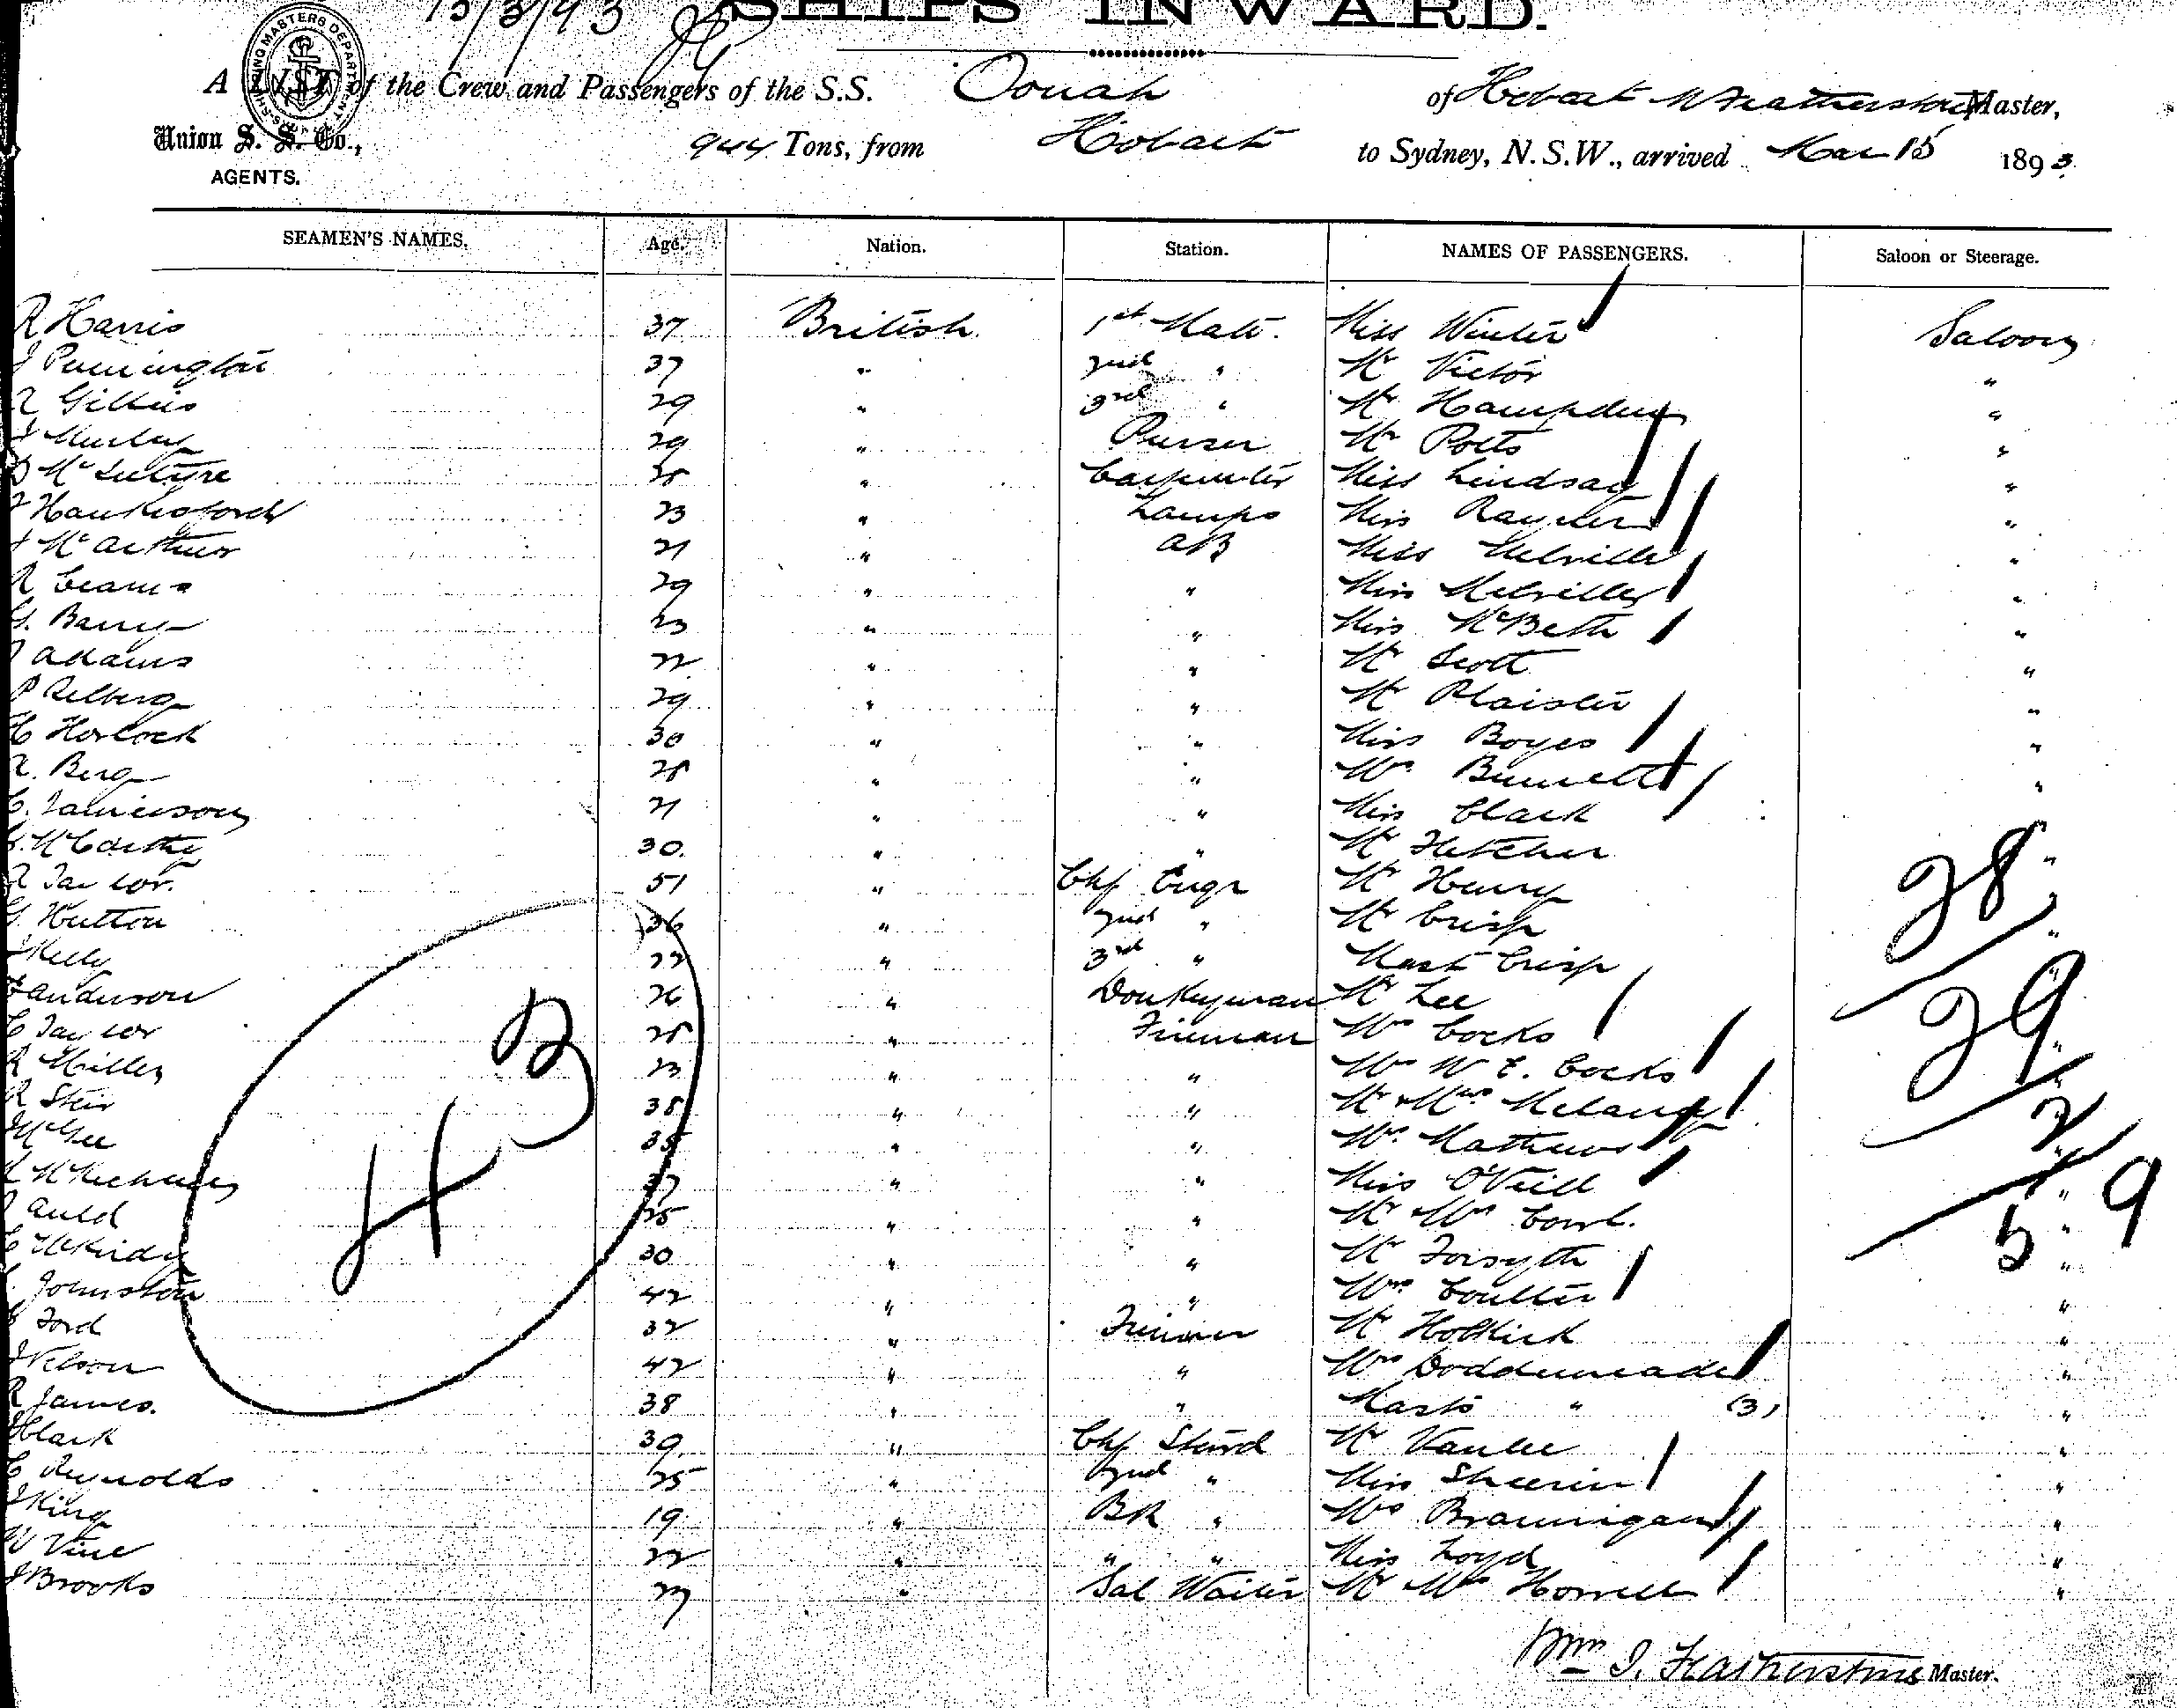 15/3/93
SHIPS INWARD.
A LIST of the Crew and Passengers of the S.S. Oonah of Hobart W Featherstone Master,
Union S. S. Co., AGENTS. 944 Tons, from Hobart to Sydney, N.S.W., arrived Mar 15 1893.
SEAMEN'S NAMES. Age. Nation. Station. NAMES OF PASSENGERS. Saloon or Steerage.
R Harris 37 British 1st Mate. Miss Winter Saloon
J Pennington 37 " 2nd " Mr Victor "
R Gillies 29 " 3rd " Mr Hampden "
29 " Purser Mr Potts "
D McIntyre 25 " Carpenter Miss Lindsay "
Hankisford 23 " Lamps Miss Rayner "
McArthur 21 " AB Miss Melville "
R Ceams 29 " " Miss Melville "
G. Barry 23 " " Miss McBeth "
J Adams 22 " " Mr Scott "
P Relberg 29 " " Mr Plaister "
H Horlock 30 " " Miss Boyes "
R. Berg 25 " " Mrs Burnett "
C. Jamieson 21 " " Miss Clark
G. McCarthy 30. " " Mr Fletcher "
R Taylor. 51 " Chf Engr Mr Henry "
G Hutton 36 " 2nd " Mr Crisp "
J Kelly 22 " 3rd " Mast Crisp "
F Anderson 26 " Donkeyman Mr Lee "
C Taylor 25 " Fireman Mrs Cocks "
R Miller 23 " " Mrs W E. Cocks "
R Steir 38 " " Mr & Mrs "
McGee 35 " " Mrs Mathews "
27 " " Miss O'Neill "
J Auld 25 " " Mr Mrs Cowl. "
C McKirdy 30 " " Mr Forsyth "
Johnston 42 " " Mrs Coulter "
G Ford 32 " Trimmer Mr Holkirk "
J Nelson 42 " " Mrs Doddemeade "
R James. 38 " " Masts " (3) "
J Clark 39. " Chf Stwrd Mr "
C Reynolds 25 " 2nd " Miss Sheerin "
J King 19 " BR " Mrs Brannigan "
W Vine 22 " " " Miss Loyd "
J Brooks 27 " Sal Waiter Mr Mrs Horrell "
28
29
2
59
HB
Wm I. Featherstone Master.